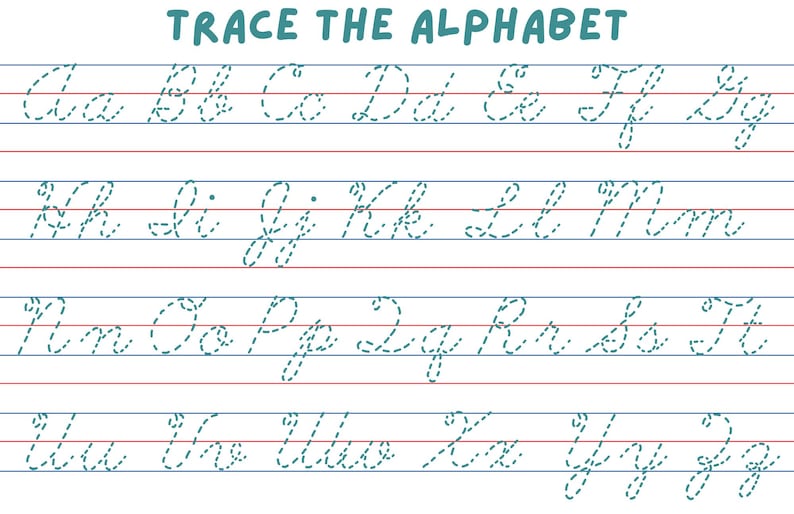 TRACE THE ALPHABET
Aa Bb Cc Dd Ee Ff Gg
Hh Ii Jj Kk Ll Mm
Nn Oo Pp Qq Rr Ss Tt
Uu Vv Ww Xx Yy Zz